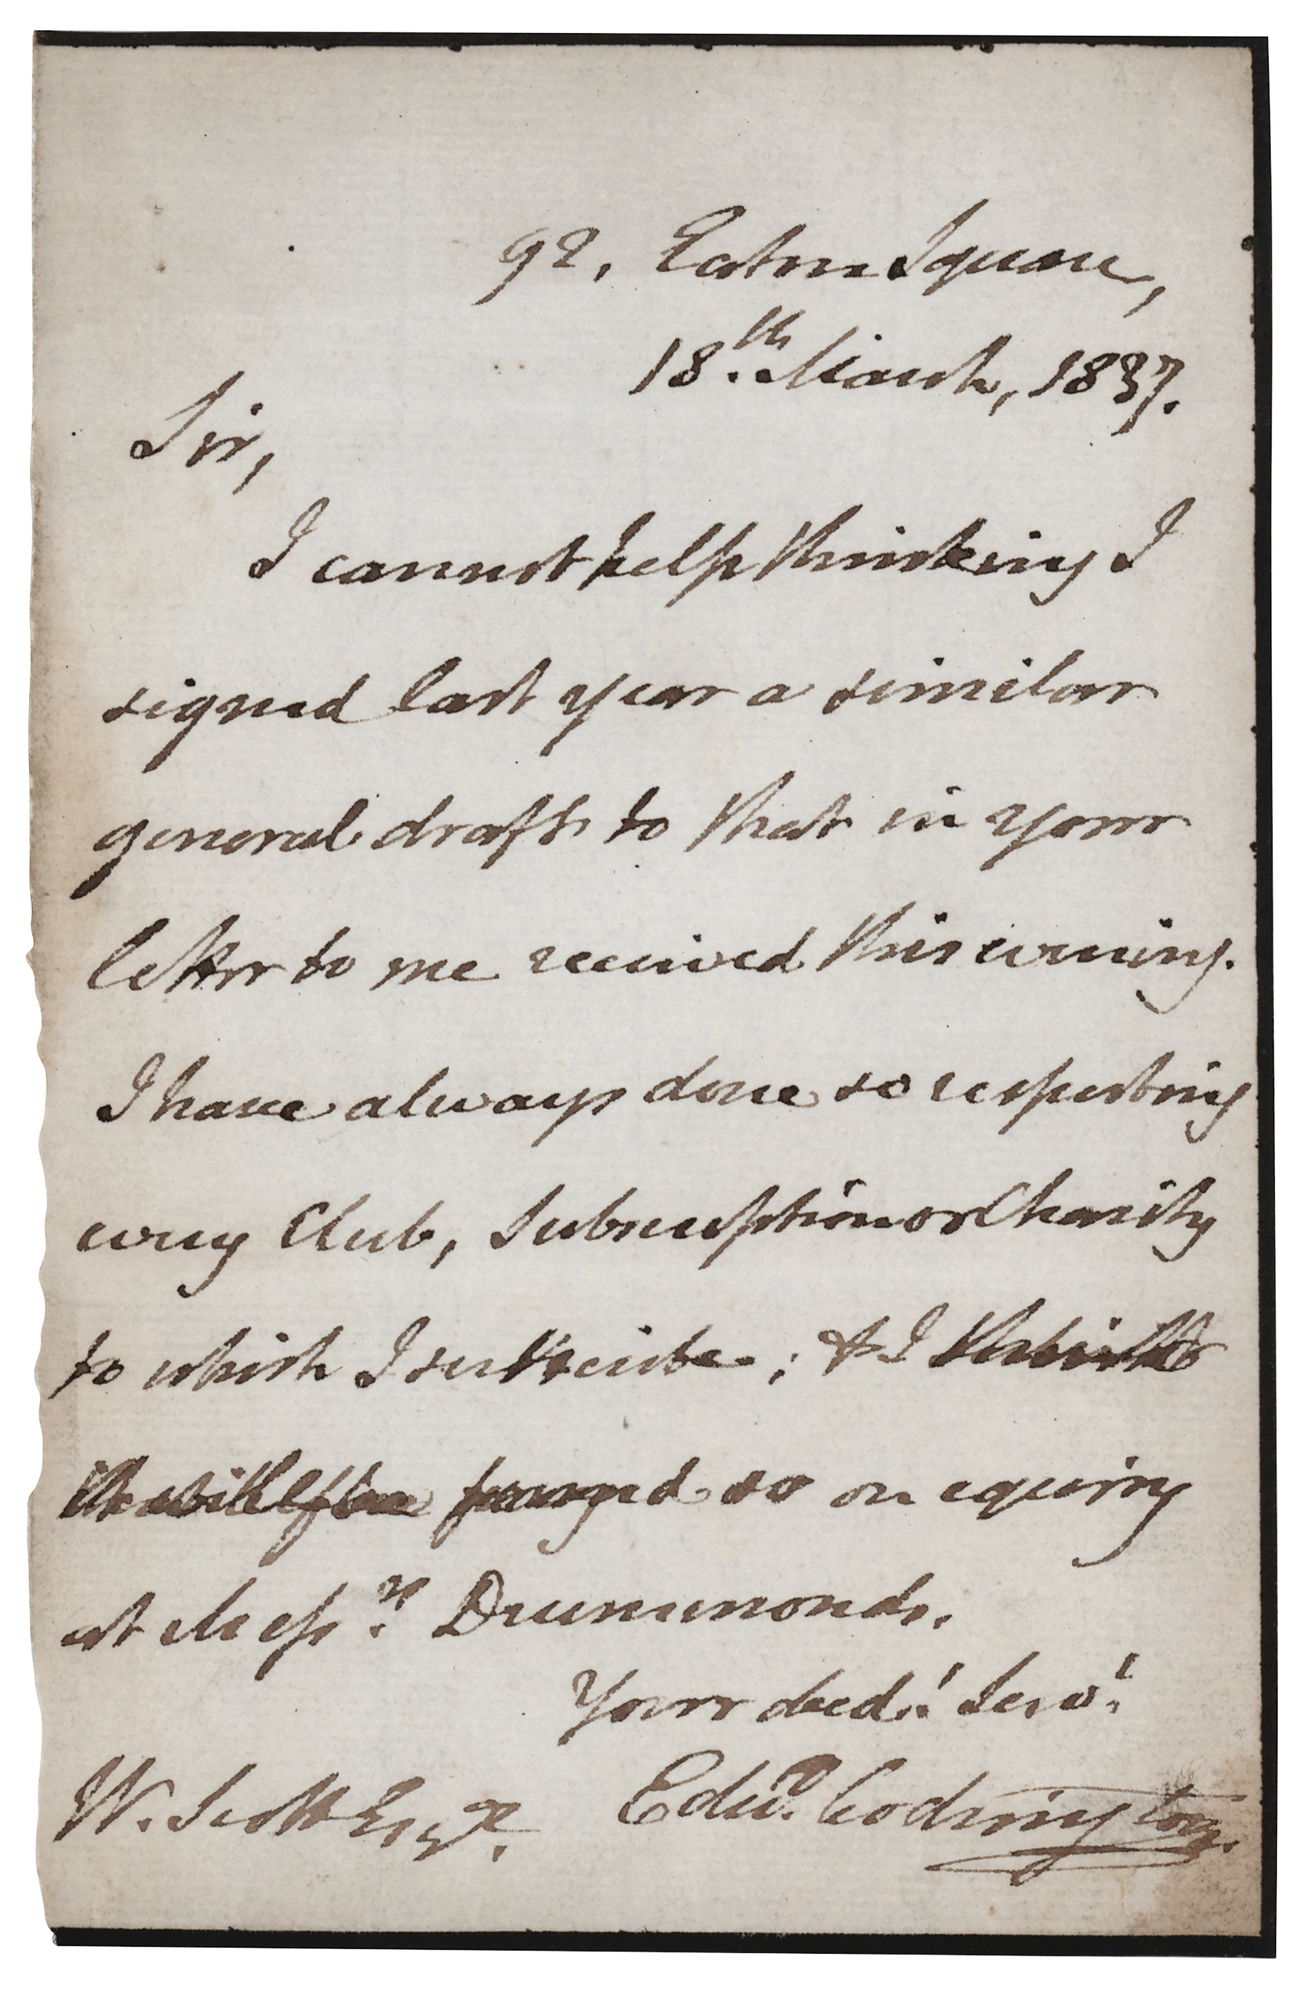 92, Eaton Square,
18.th March, 1837.
Sir,
I cannot help thinking I
signed last year a similar
general draft to that in your
letter to me received this evening.
I have always done so respecting
every Club, Subscription or Charity
to which I subscribe; & I think
it will be found so on equiry
at Messrs. Drummonds.
Your obed.t Serv.t
W. Scott Esqre. Edwd. Codrington.